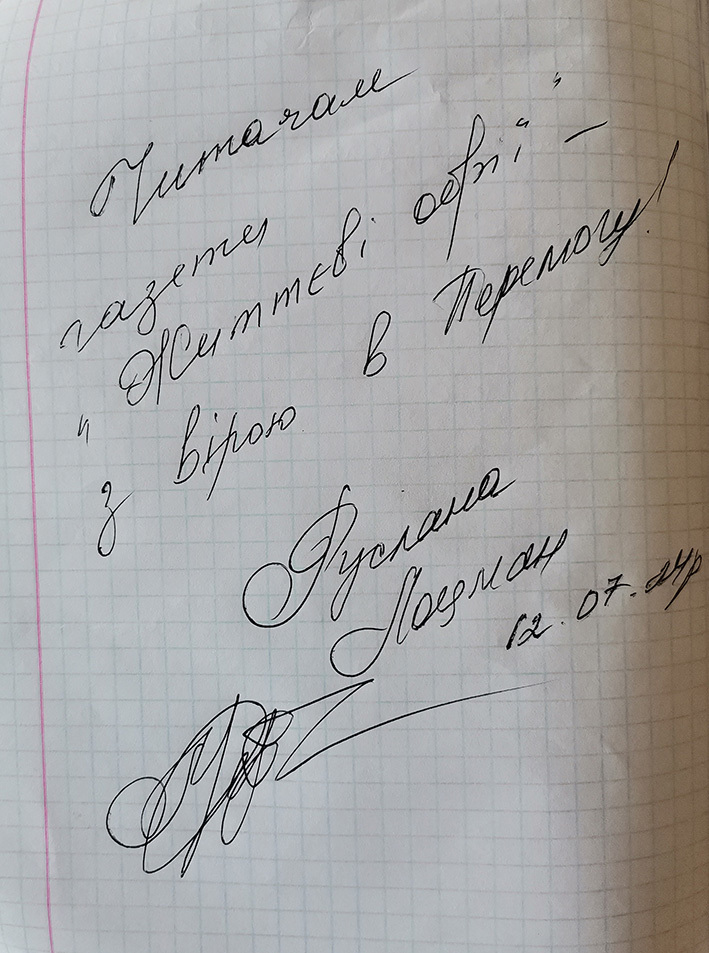 Читачам
газети
"Життєві обрії" –
з вірою в Перемогу!
Руслана
Лоцман
12.07.24р